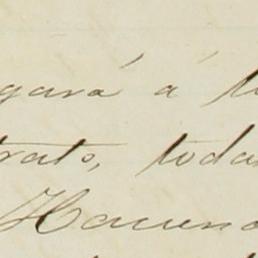 gará á
trato, toda
Hacienda